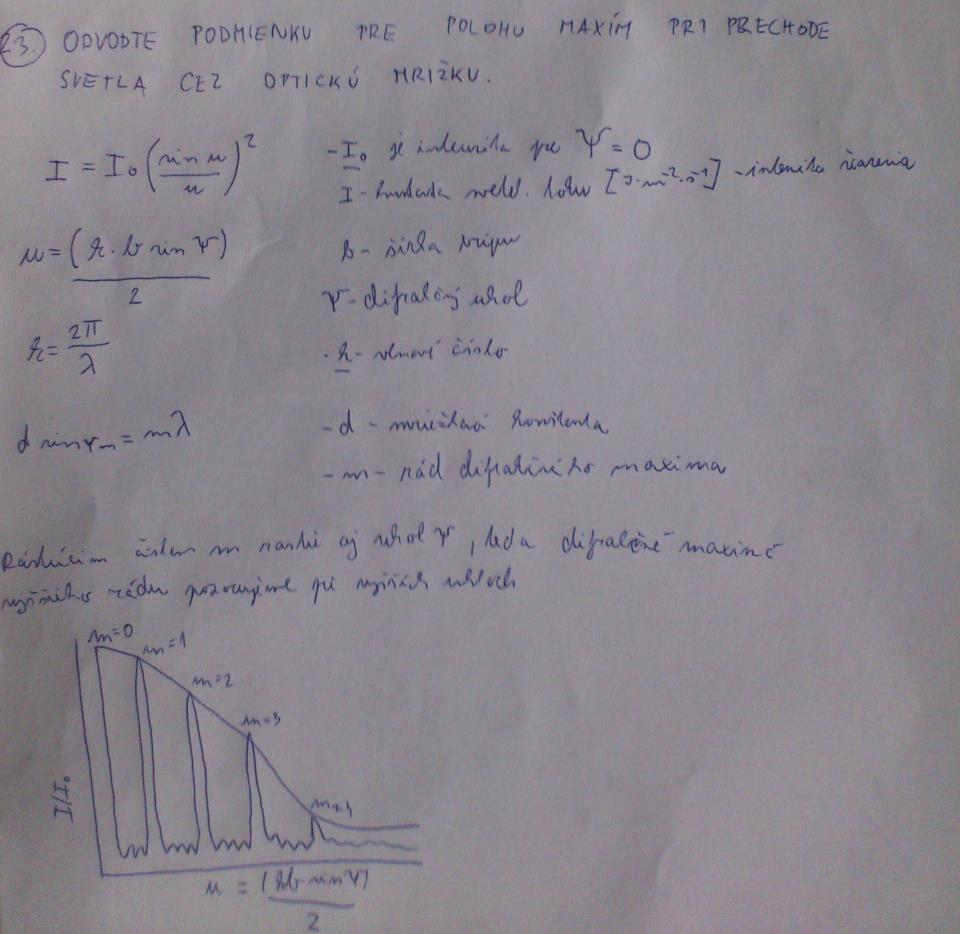 23. ODVOĎTE PODMIENKU PRE POLOHU MAXÍM PRI PRECHODE
SVETLA CEZ OPTICKÚ MRIŽKU.
I = I₀ (sin u / u)²
- I₀ je intenzita pre Ψ = 0
I - hustota svetel. toku [J·m⁻²·s⁻¹] - intenzita žiarenia
u = (k·b sin Ψ) / 2
b - šírka vrypu
Ψ - difračný uhol
k = 2π / λ
- k - vlnové číslo
d sin Ψₘ = mλ
- d - mriežková konštanta
- m - rád difračného maxima
Rastúcim číslom m rastie aj uhol Ψ, teda difračné maximá
vyššieho rádu pozorujeme pri vyšších uhloch
m=0
m=1
m=2
m=3
m=4
I/I₀
u = (kb sin Ψ) / 2